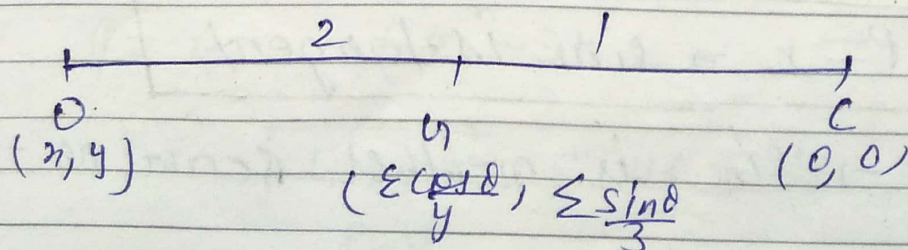 2 1
O G C
(x, y) (Σcosθ/y, Σsinθ/3 (0, 0)